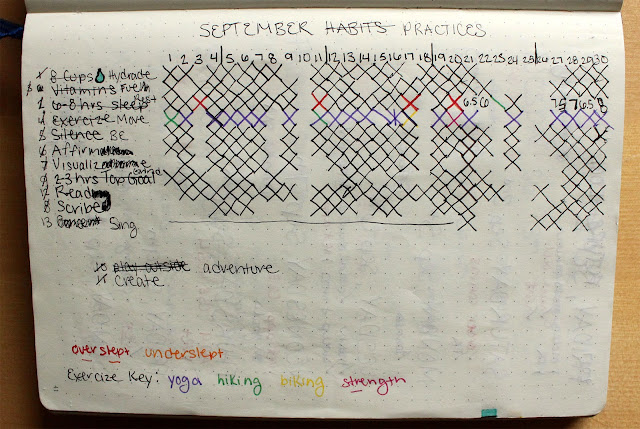 SEPTEMBER HABITS PRACTICES
1 2 3 4 5 6 7 8 9 10 11 12 13 14 15 16 17 18 19 20 21 22 23 24 25 26 27 28 29 30
8 Cups Hydrate
Vitamins Fuel
6-8 hrs sleep Rest
6.5 6 7.5 7 6.5 8
4 Exercize Move
5 Silence BE
6 Affirm
7 Visualiz
2-3 hrs Top Goal
Read
8 Scribe
13 Sing
10 play outside adventure
11 create
overslept underslept
Exercize Key: yoga hiking biking strength